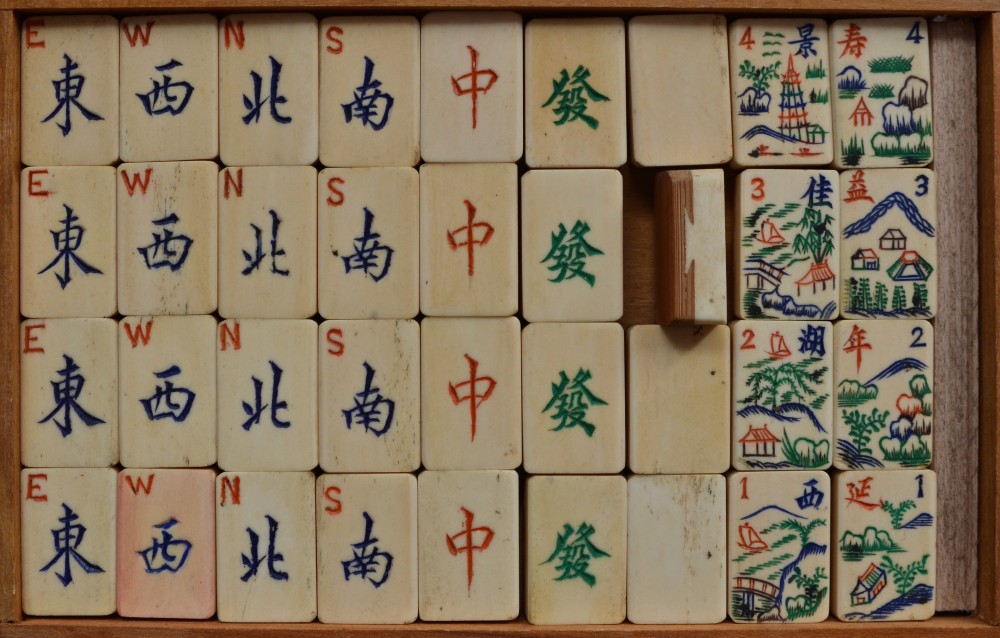 E 東 W 西 N 北 S 南 中 發 4 景 寿 4
E 東 W 西 N 北 S 南 中 發 3 佳 益 3
E 東 W 西 N 北 S 南 中 發 2 湖 年 2
E 東 W 西 N 北 S 南 中 發 1 西 延 1